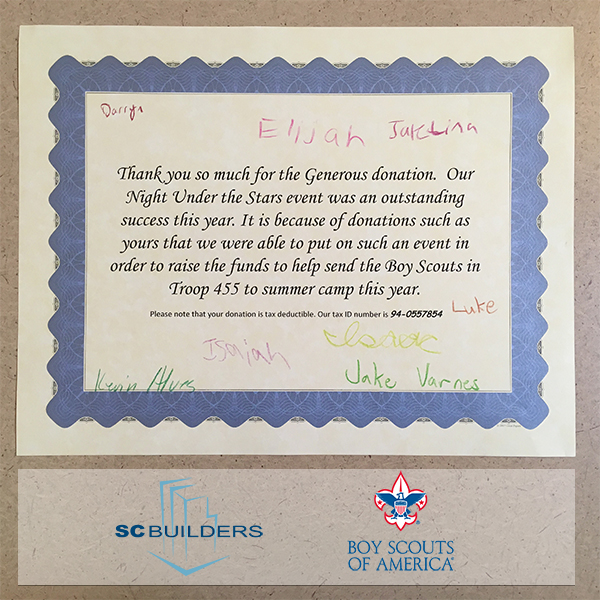 Darryn
Elijah
Thank you so much for the Generous donation. Our
Night Under the Stars event was an outstanding
success this year. It is because of donations such as
yours that we were able to put on such an event in
order to raise the funds to help send the Boy Scouts in
Troop 455 to summer camp this year.
Please note that your donation is tax deductible. Our tax ID number is 94-0557854
Luke
Isaiah
Isaac
Kevin
Jake Varnes
SCBUILDERS
BOY SCOUTS
OF AMERICA